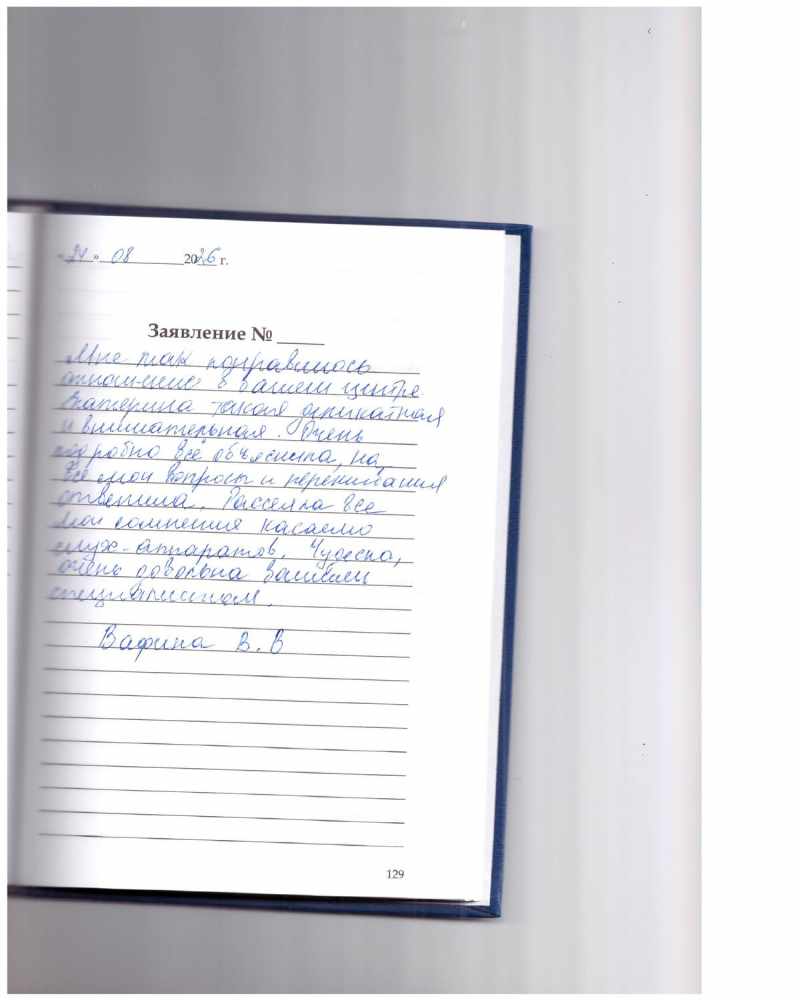 «24» 08 2026 г.
Заявление № _____
Мне так понравилось
отношение в вашем центре
Екатерина такая деликатная
и внимательная. Очень
подробно всё объяснила, на
все мои вопросы и переживания
ответила. Рассеяла все
мои сомнения касаемо
слух-аппаратов. Чудесна,
очень довольна вашим
специалистом.
Вафина В. В
129